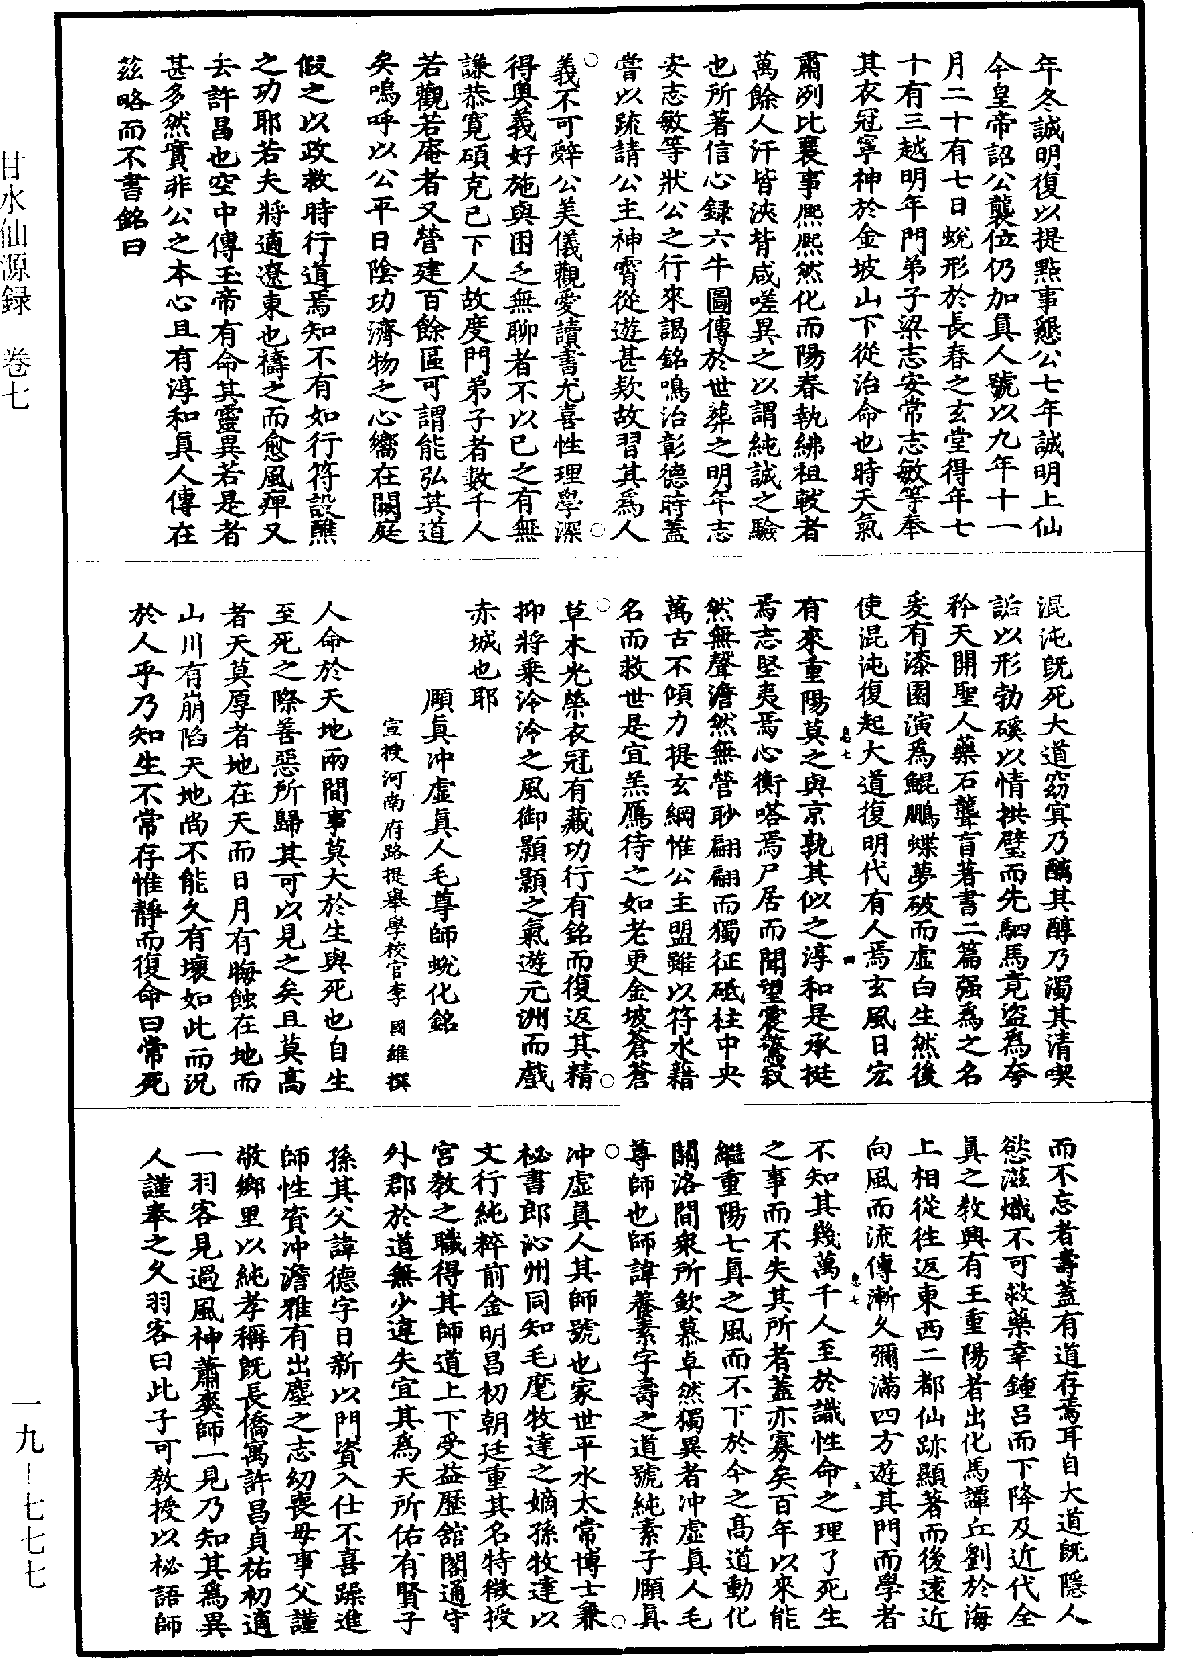 甘水仙源録　卷七
年冬誠明復以提點事懇公七年誠明上仙
今皇帝詔公襲位仍加真人號以九年十一
月二十有七日蛻形於長春之玄堂得年七
十有三越明年門弟子梁志安常志敏等奉
其衣冠寧神於金坡山下從治命也時天氣
肅冽比襄事熈熈然化而陽春執紼祖載者
萬餘人汗皆浹背咸嗟異之以謂純誠之驗
也所著信心録六牛圖傳於世葬之明年志
安志敏等狀公之行來謁銘鳴治彰德時蓋
嘗以䟽請公主神霄從遊甚欵故習其爲人
義不可辤公美儀觀愛讀書尤喜性理學深
得奥義好施與困乏無聊者不以已之有無
謙恭寬碩克已下人故度門弟子者數千人
若觀若庵者又營建百餘區可謂能弘其道
矣嗚呼以公平日陰功濟物之心嚮在闕庭
假之以政救時行道焉知不有如行符設醮
之功耶若夫將適遼東也禱之而愈風痺又
去許昌也空中傳玉帝有命其靈異若是者
甚多然實非公之本心且有淳和真人傳在
兹略而不書銘曰
混沌旣死大道窈㝠乃醨其醇乃濁其清喫
詬以形勃磎以情拱璧而先駟馬竟盜爲夸
矜天開聖人藥石聾盲著書二篇强爲之名
爰有漆園演爲鯤鵬蝶夢破而虚白生然後
使混沌復起大道復明代有人焉玄風日宏
有來重陽莫之與京孰其似之淳和是承挺
焉志堅夷焉心衡嗒焉尸居而聞望震驚寂
然無聲澹然無營眇翩翩而獨征砥柱中央
萬古不傾力提玄綱惟公主盟雖以符水藉
名而救世是宜羔鴈待之如老更金坡蒼蒼
草木光榮衣冠有藏功行有銘而復返其精
抑將乗泠泠之風御顥顥之氣遊元洲而戲
赤城也耶
願真冲虚真人毛尊師蛻化銘
宣授河南府路提舉學校官李國維撰
人命於天地兩間事莫大於生與死也自生
至死之際善惡所歸其可以見之矣且莫高
者天莫厚者地在天而日月有晦蝕在地而
山川有崩陷天地尚不能久有壞如此而況
於人乎乃知生不常存惟靜而復命曰常死
而不忘者壽蓋有道存焉耳自大道旣隱人
慾滋熾不可救藥幸鍾吕而下降及近代全
真之教興有王重陽者出化馬譚丘劉於海
上相從往返東西二都仙跡顯著而後遠近
向風而流傳漸久彌滿四方遊其門而學者
不知其幾萬千人至於識性命之理了死生
之事而不失其所者蓋亦寡矣百年以來能
繼重陽七真之風而不下於今之高道動化
關洛間衆所欽慕卓然獨異者冲虚真人毛
尊師也師諱養素字壽之道號純素子願真
冲虚真人其師號也家世平水太常博士兼
秘書郎沁州同知毛麾牧達之嫡孫牧達以
文行純粹前金明昌初朝廷重其名特徵授
宫教之職得其師道上下受益歷館閣通守
外郡於道無少違失宜其爲天所佑有賢子
孫其父諱德字日新以門資入仕不喜躁進
師性資冲澹雅有出塵之志幼喪母事父謹
敬鄉里以純孝稱旣長僑寓許昌貞祐初適
一羽客見過風神蕭爽師一見乃知其爲異
人謹奉之久羽客曰此子可教授以秘語師
一九—七七七